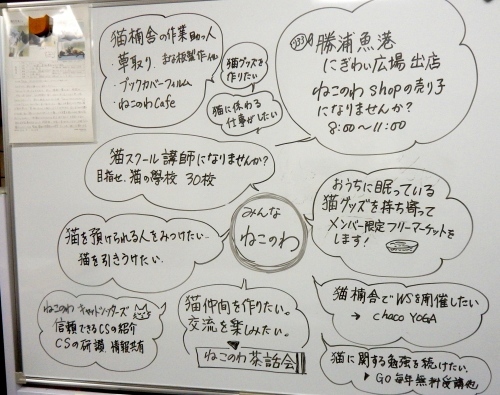 猫楠舎の作業助っ人
・草取り、
・ブックカバーフィルム
・ねこのわCafe
猫グッズを
作りたい
猫に係わる
仕事がしたい
勝浦魚港
にぎわい広場 出店
ねこのわshopの売り子
になりませんか?
8:00~11:00
猫スクール 講師になりませんか?
目指せ、猫の學校 30校
みんな
ねこのわ
おうちに眠っている
猫グッズを持ち寄って
メンバー限定フリーマーケットを
します!
猫を預けられる人をみつけたい
猫を引きうけたい
ねこのわ キャットシッターズ
信頼できるCSの紹介
CSの研鑽、情報共有
猫仲間を作りたい。
交流を楽しみたい。
ねこのわ 茶話会
猫楠舎でWSを開催したい
→ choco YOGA
猫に関する勉強を続けたい。
▶ GO毎年無料受講他